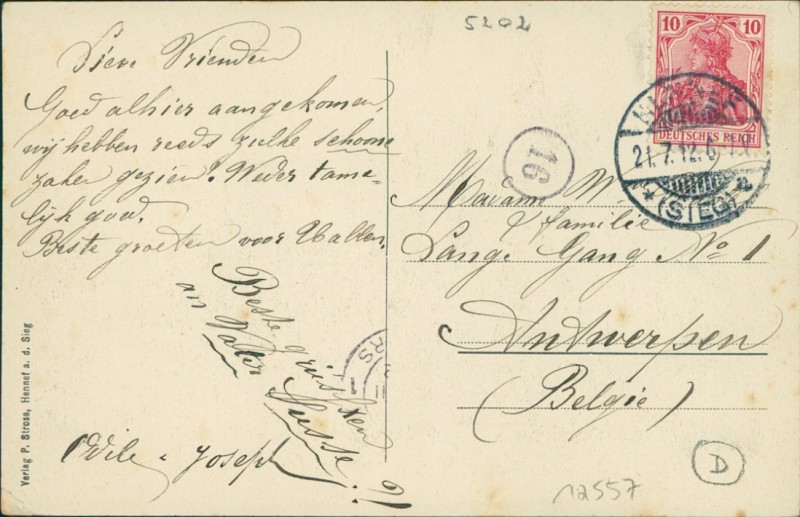 5202
Lieve Vrienden
Goed alhier aangekomen,
wij hebben reeds zulke schoone
zaken gezien. Weder tame-
lijk goed.
Beste groeten voor U allen.
Beste
an Vater
Odile & Joseph
Verlag P. Stross, Hennef a. d. Sieg
10 10
DEUTSCHES REICH
21.7.12.6
(SIEG)
16
Madame W
& familie
Lange Gang No 1
Antwerpen
(Belgie)
D
12557